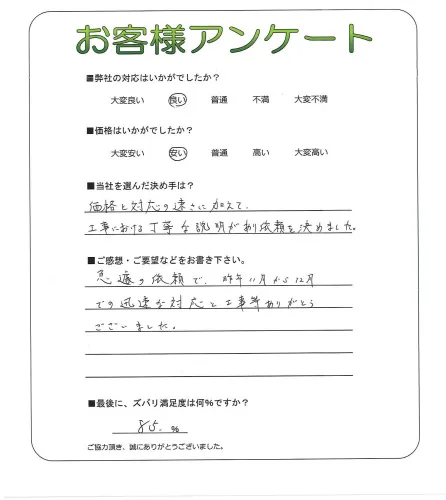 お客様アンケート
■弊社の対応はいかがでしたか？
大変良い 良い 普通 不満 大変不満
■価格はいかがでしたか？
大変安い 安い 普通 高い 大変高い
■当社を選んだ決め手は？
価格と対応の速さに加えて、
工事における丁寧な説明があり依頼を決めました。
■ご感想・ご要望などをお書き下さい。
急遽の依頼で、昨年11月から12月
での迅速な対応と工事等ありがとう
ございました。
■最後に、ズバリ満足度は何％ですか？
85. ％
ご協力頂き、誠にありがとうございました。